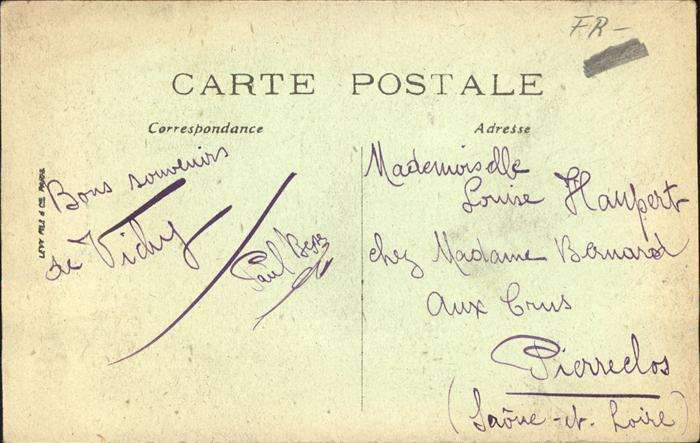 FR-
CARTE POSTALE
Correspondance
Adresse
LEVY FILS & CIE PARIS
Bons souvenirs
de Vichy
Paul
Mademoiselle
Louise Haupert
chez Madame Bernard
Aux Crus
Pierreclos
(Saône-et-Loire)